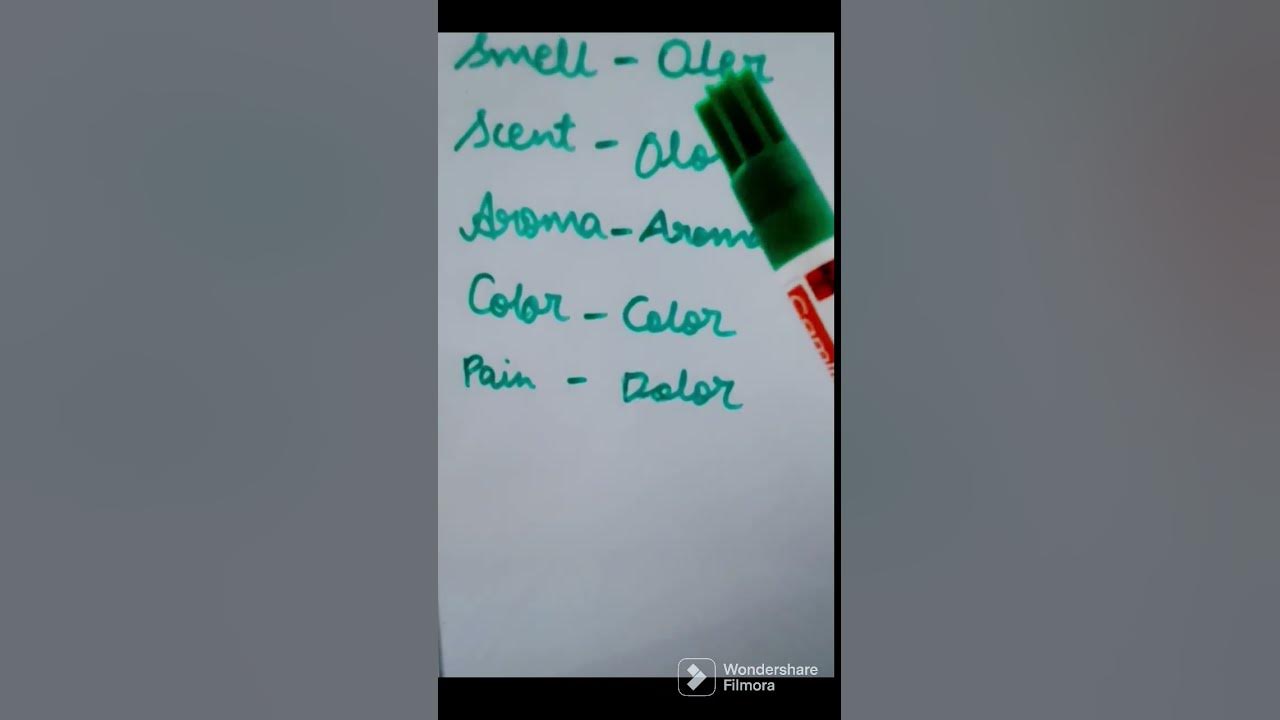 Smell - Oler
Scent - Olo
Aroma - Aroma
Color - Color
Pain - Dolor
Wondershare
Filmora